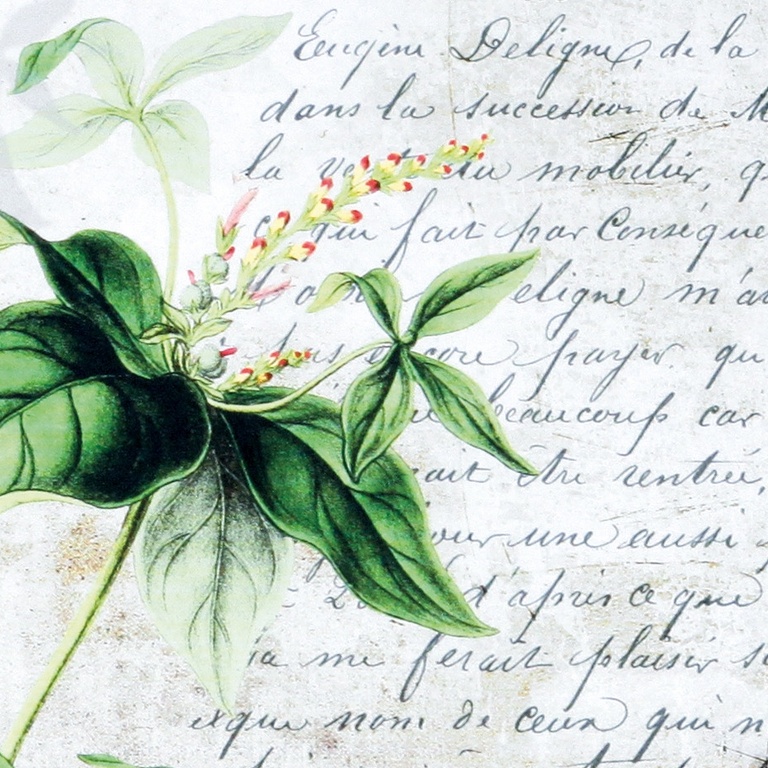 Eugène Deligne, de la
dans la succession de M
la vente du mobilier, q
qui fait par Conséque
eligne m'a
encore payer qu
beaucoup car
ait être rentrée,
our une aussi
d'après ce que
ia me ferait plaisir s
exque nom de ceux qui n